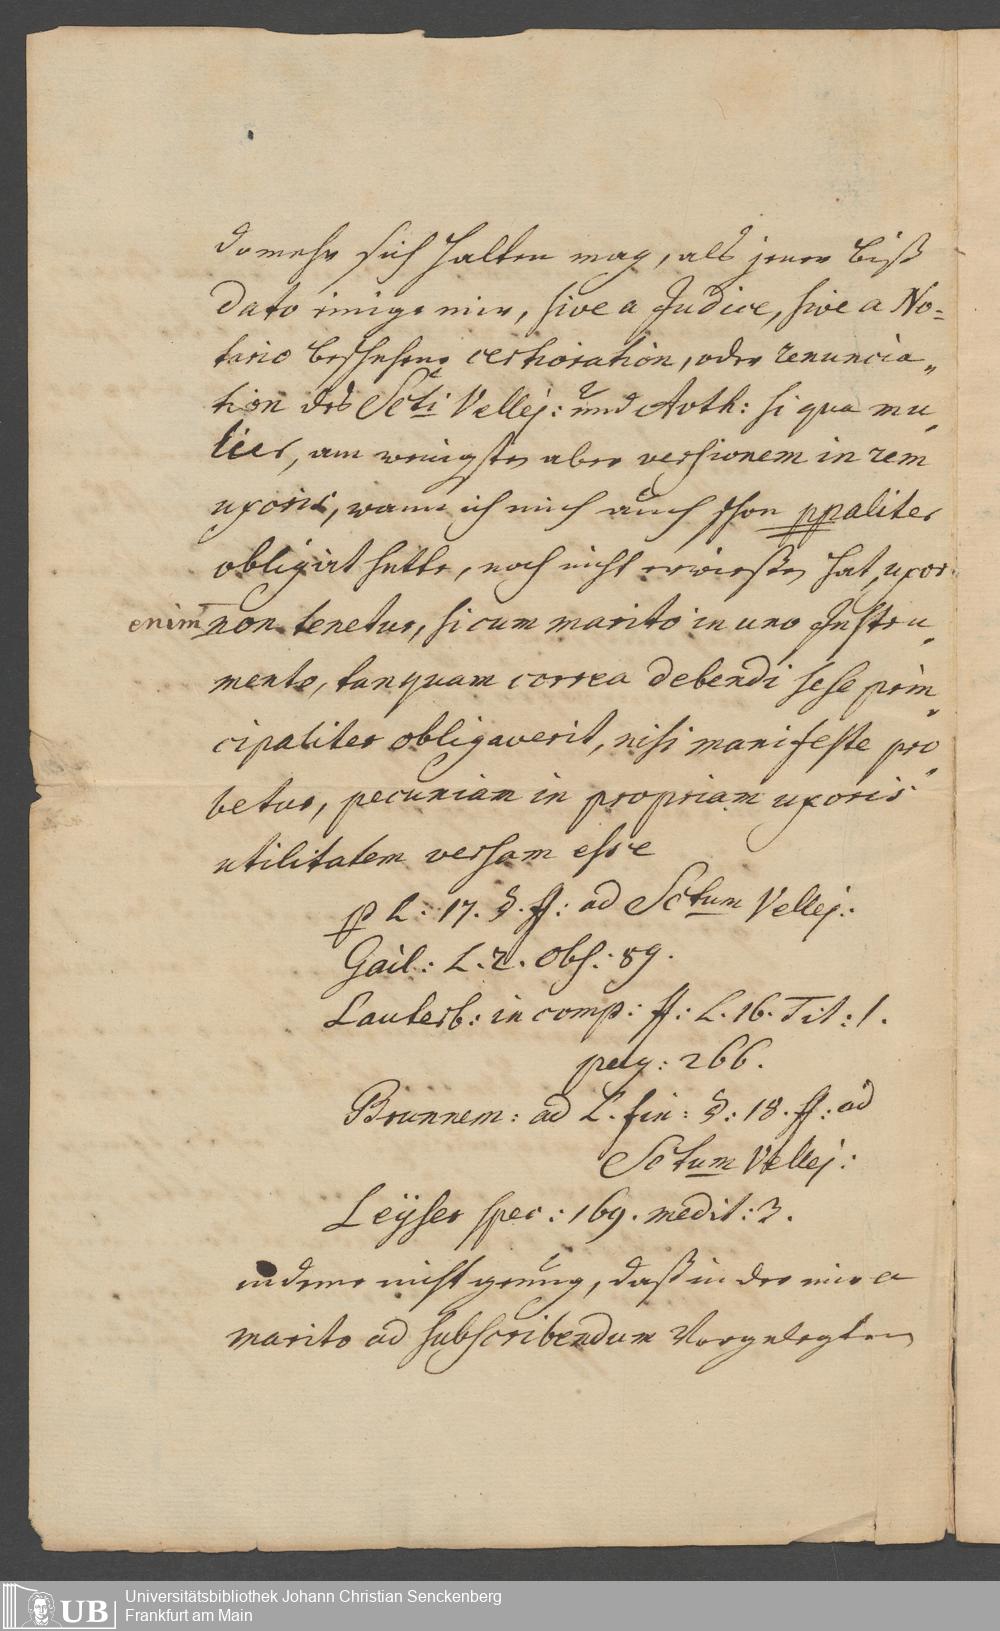 do mehr sich halten mag, als jener biß
dato einige mir, sive a Judice, sive a No=
tario beschehene certioration, oder renuncia„
tion des Scti Vellej: und Auth: si qua mu„
lier, am wenigsten aber versionem in rem
uxoris, wann ich mich auch schon ppaliter
obligirt hette, noch nicht erwießen hat, uxor
enim non tenetur, si cum marito in uno Instru„
mento, tanquam correa debendi sese prin„
cipaliter obligaverit, nisi manifeste pro„
betur, pecuniam in propriam uxoris
utilitatem versam esse
p L: 17. §. ff: ad Sctum Vellej:
Gail: L. 2. Obs: 89.
Lauterb: in comp: ff: L. 16. Tit: 1.
pag: 266.
Brunnem: ad L. fin: §: 18. ff: ad
Sctum Vellej:
Leÿser spec: 169. medit: 3.
indeme nicht genug, daß in der mir a
marito ad subscribendum vorgelegten
UB
Universitätsbibliothek Johann Christian Senckenberg
Frankfurt am Main